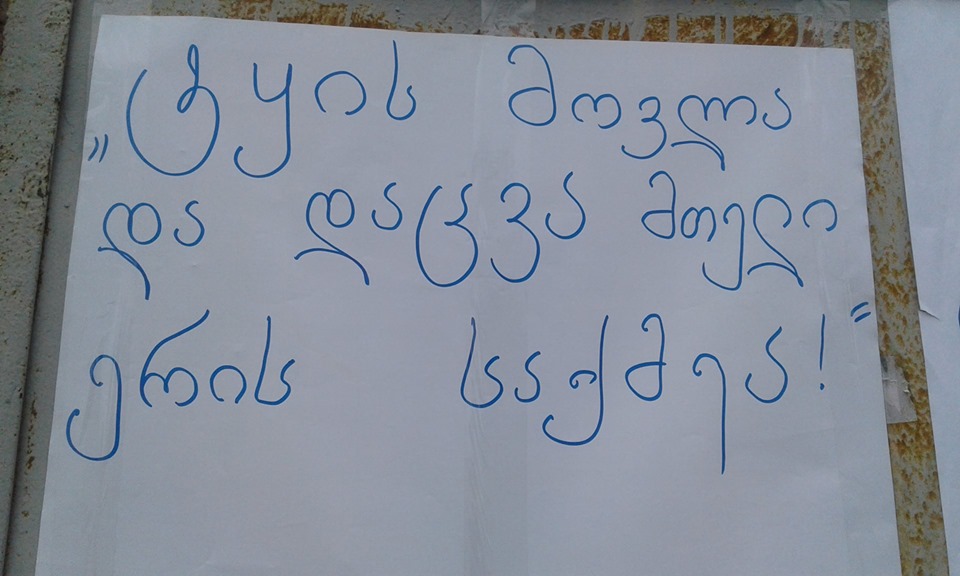 „ტყის მოვლა
და დაცვა მთელი
ერის საქმეა!“